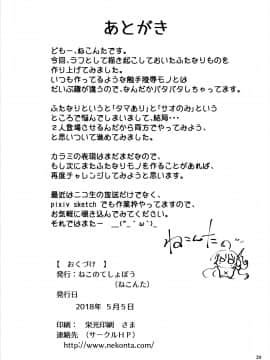 あとがき
どもー、ねこんたです。
今回、ラフとして描き起こしておいたふたなりものを
作り上げてみました。
いつも作ってるような触手陵辱モノとは
だいぶ趣が違うので、なんだかバタバタしちゃってます。
ふたなりというと「タマあり」「サオのみ」という
ところで悩んでしまいまして、結局・・・
2人登場させるんだから両方でやってみよう、
と思いついて進めてみました。
カラミの表現はまだまだなので、
もし次にまたふたなりモノを作ることがあれば、
再度チャレンジしてみようと思います。
最近はニコ生の放送だけでなく、
pixiv sketch でも作業枠やってますので、
お気軽に覗き込んでみてください。
それではまたー __(°´ω`)_
ねこんた
【 おくづけ 】
発行：ねこのてしょぼう
（ねこんた）
発行日
2018年 5月5日
印刷： 栄光印刷 さま
連絡先 （サークルHP）
http://www.nekonta.com/